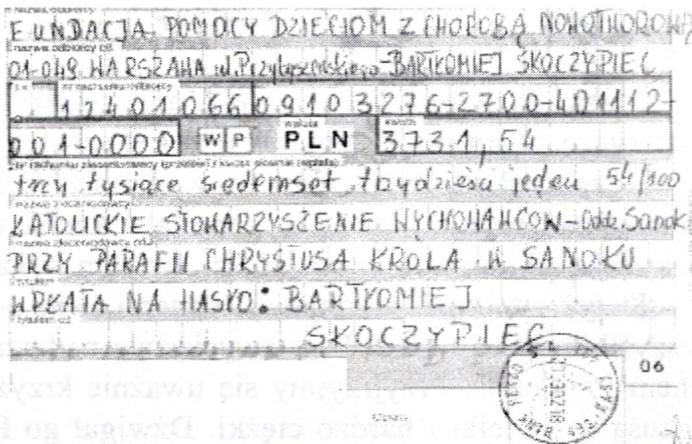 nazwa odbiorcy
FUNDACJA POMOCY DZIECIOM Z CHOROBĄ NOWOTWOROWĄ
nazwa odbiorcy cd.
01-049 WARSZAWA ul. Przytyszewskiego - BARTŁOMIEJ SKOCZYPIEC
nr rachunku odbiorcy
12401066 0910 3276-2700-401112-
001-0000 WP PLN 3731,54
waluta
kwota
trzy tysiące siedemset trzydzieści jeden 54/100
nazwa zleceniodawcy
KATOLICKIE STOWARZYSZENIE WYCHOWAWCÓW - Oddz. Sanok
nazwa zleceniodawcy cd.
PRZY PARAFII CHRYSTUSA KRÓLA W SANOKU
tytułem
WPŁATA NA HASŁO: BARTŁOMIEJ
tytułem cd.
SKOCZYPIEC
06